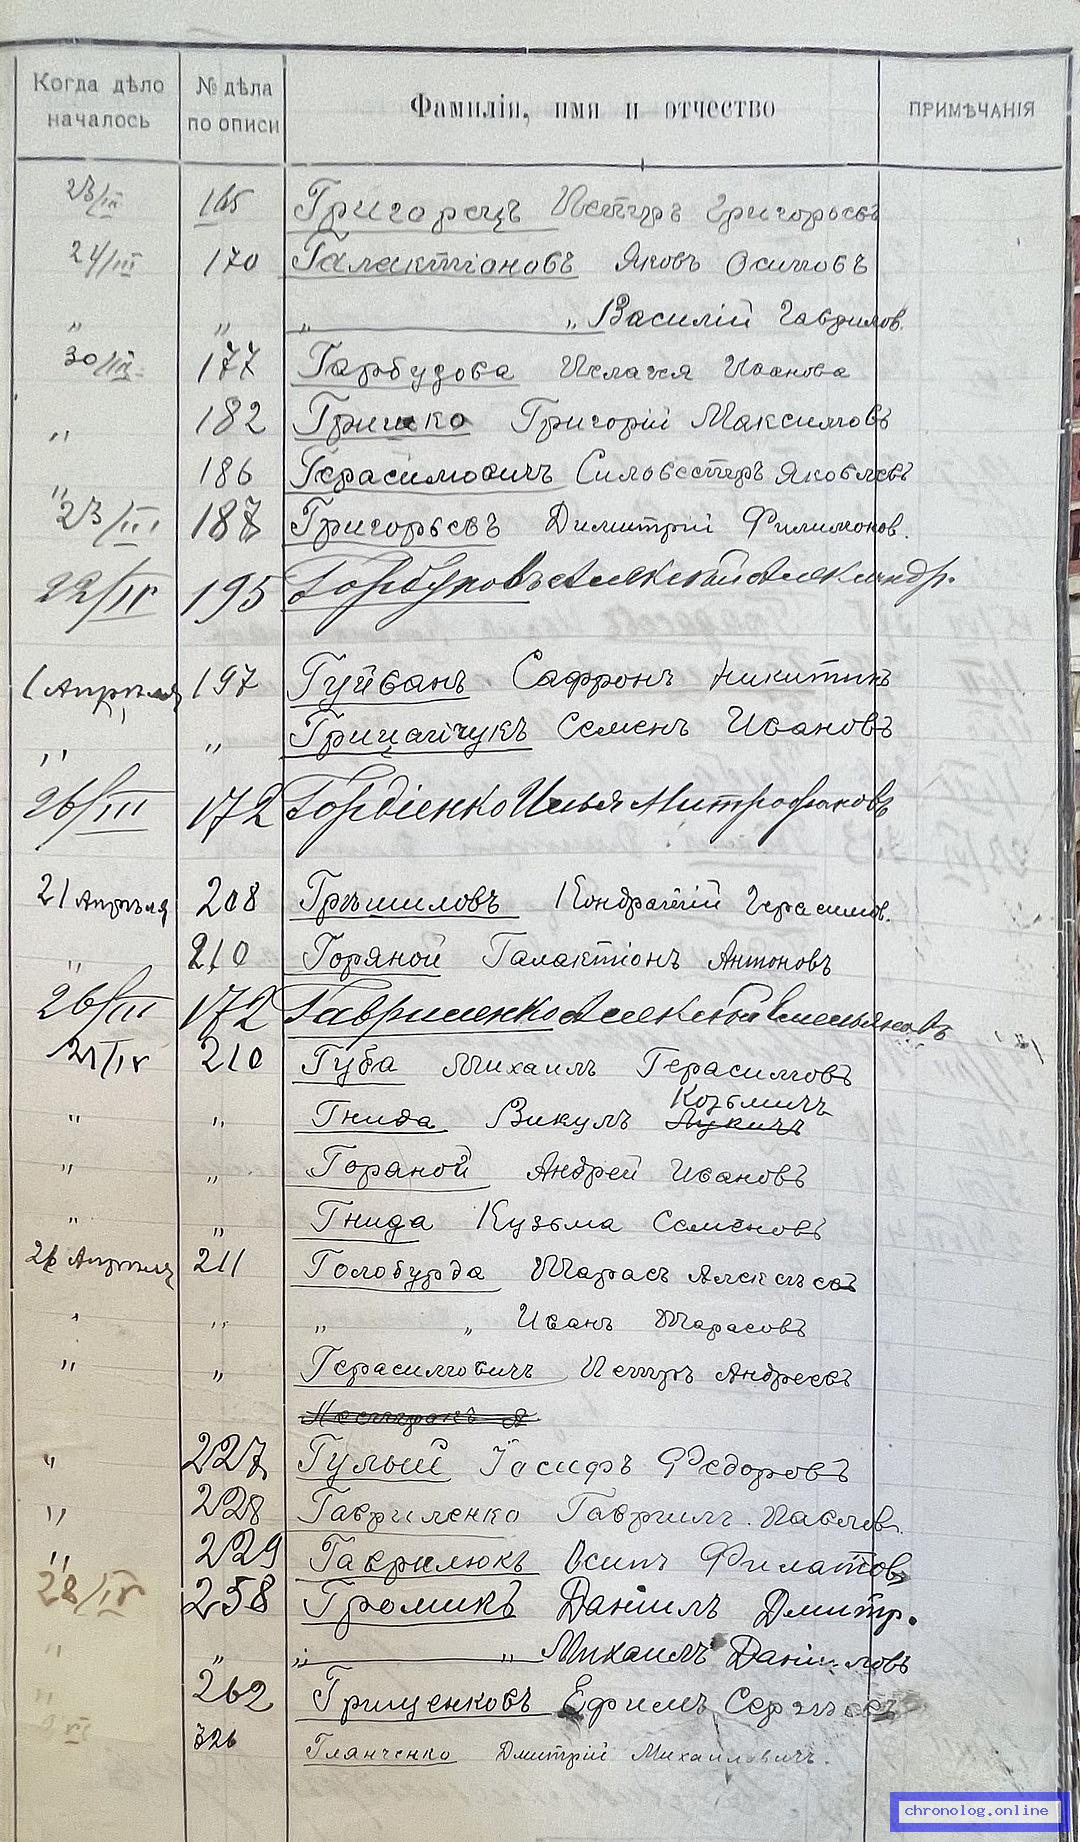 Когда дѣло началось № дѣла по описи Фамилія, имя и отчество ПРИМѢЧАНІЯ
23/III 165 Григорец Петръ Григорьевъ
24/III 170 Галактіоновъ Яковъ Осиповъ
" " " " Василій Гаврилов.
30/III 177 Гарбузова Пелагея Иванова
" 182 Гришко Григорій Максимовъ
186 Герасимовичъ Силовестръ Яковлевъ
" 23/III 187 Григорьевъ Димитрій Филимонов.
22/IV 195 Горбуновъ Алексѣй Александр.
1 Апрѣля 197 Гуйванъ Сафронъ Никитинъ
" " Грицайчукъ Семенъ Ивановъ
26/III 172 Гордіенко Илья Митрофановъ
21 Апрѣля 208 Грѣшиловъ Кондратій Герасимов.
" 210 Горяной Галактіонъ Антоновъ
26/III 172 Гавриленко Алексѣй Емельяновъ
21/IV 210 Губа Михаилъ Герасимовъ
Козьмичъ
" " Гнида Викулъ Лукичъ
" " Гораной Андрей Ивановъ
" " Гнида Кузьма Семеновъ
26 Апрѣля 211 Голобурда Тарасъ Алексѣевъ
" " " " Иванъ Тарасовъ
" " Герасимовичъ Петръ Андреевъ
" 227 Гулый Іосифъ Федоровъ
" 228 Гавриленко Гаврилъ Павлов.
" 229 Гаврилюкъ Осипъ Филатовъ
28/IV 258 Громикъ Даніилъ Дмитр.
" " " " Михаилъ Даниловъ
" 262 Грищенковъ Ефимъ Сергѣевъ
326 Гланченко Дмитрій Михаиловичъ.
chronolog.online